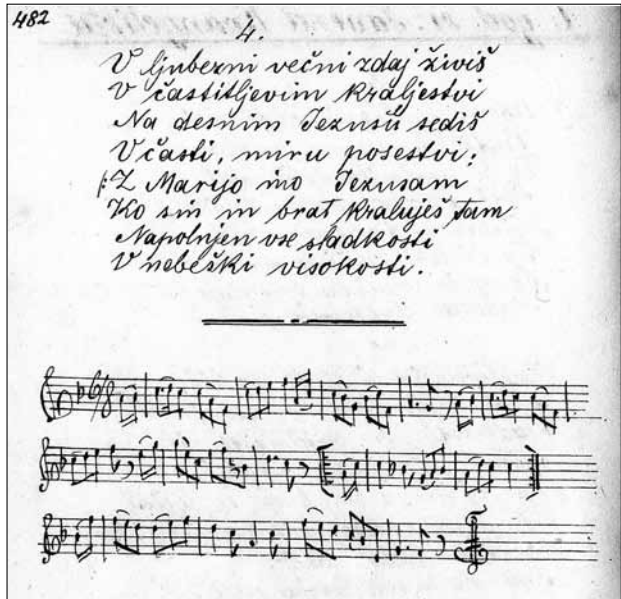 482
4.
V ljubezni večni zdaj živiš
V častitljevim kraljestvi
Na desnim Jezusu sediš
V časti, miru posestvi;
/: Z Marijo ino Jezusam
Ko sin in brat kraluješ tam
Napolnjen vse sladkosti
V nebeški visokosti.
6/8